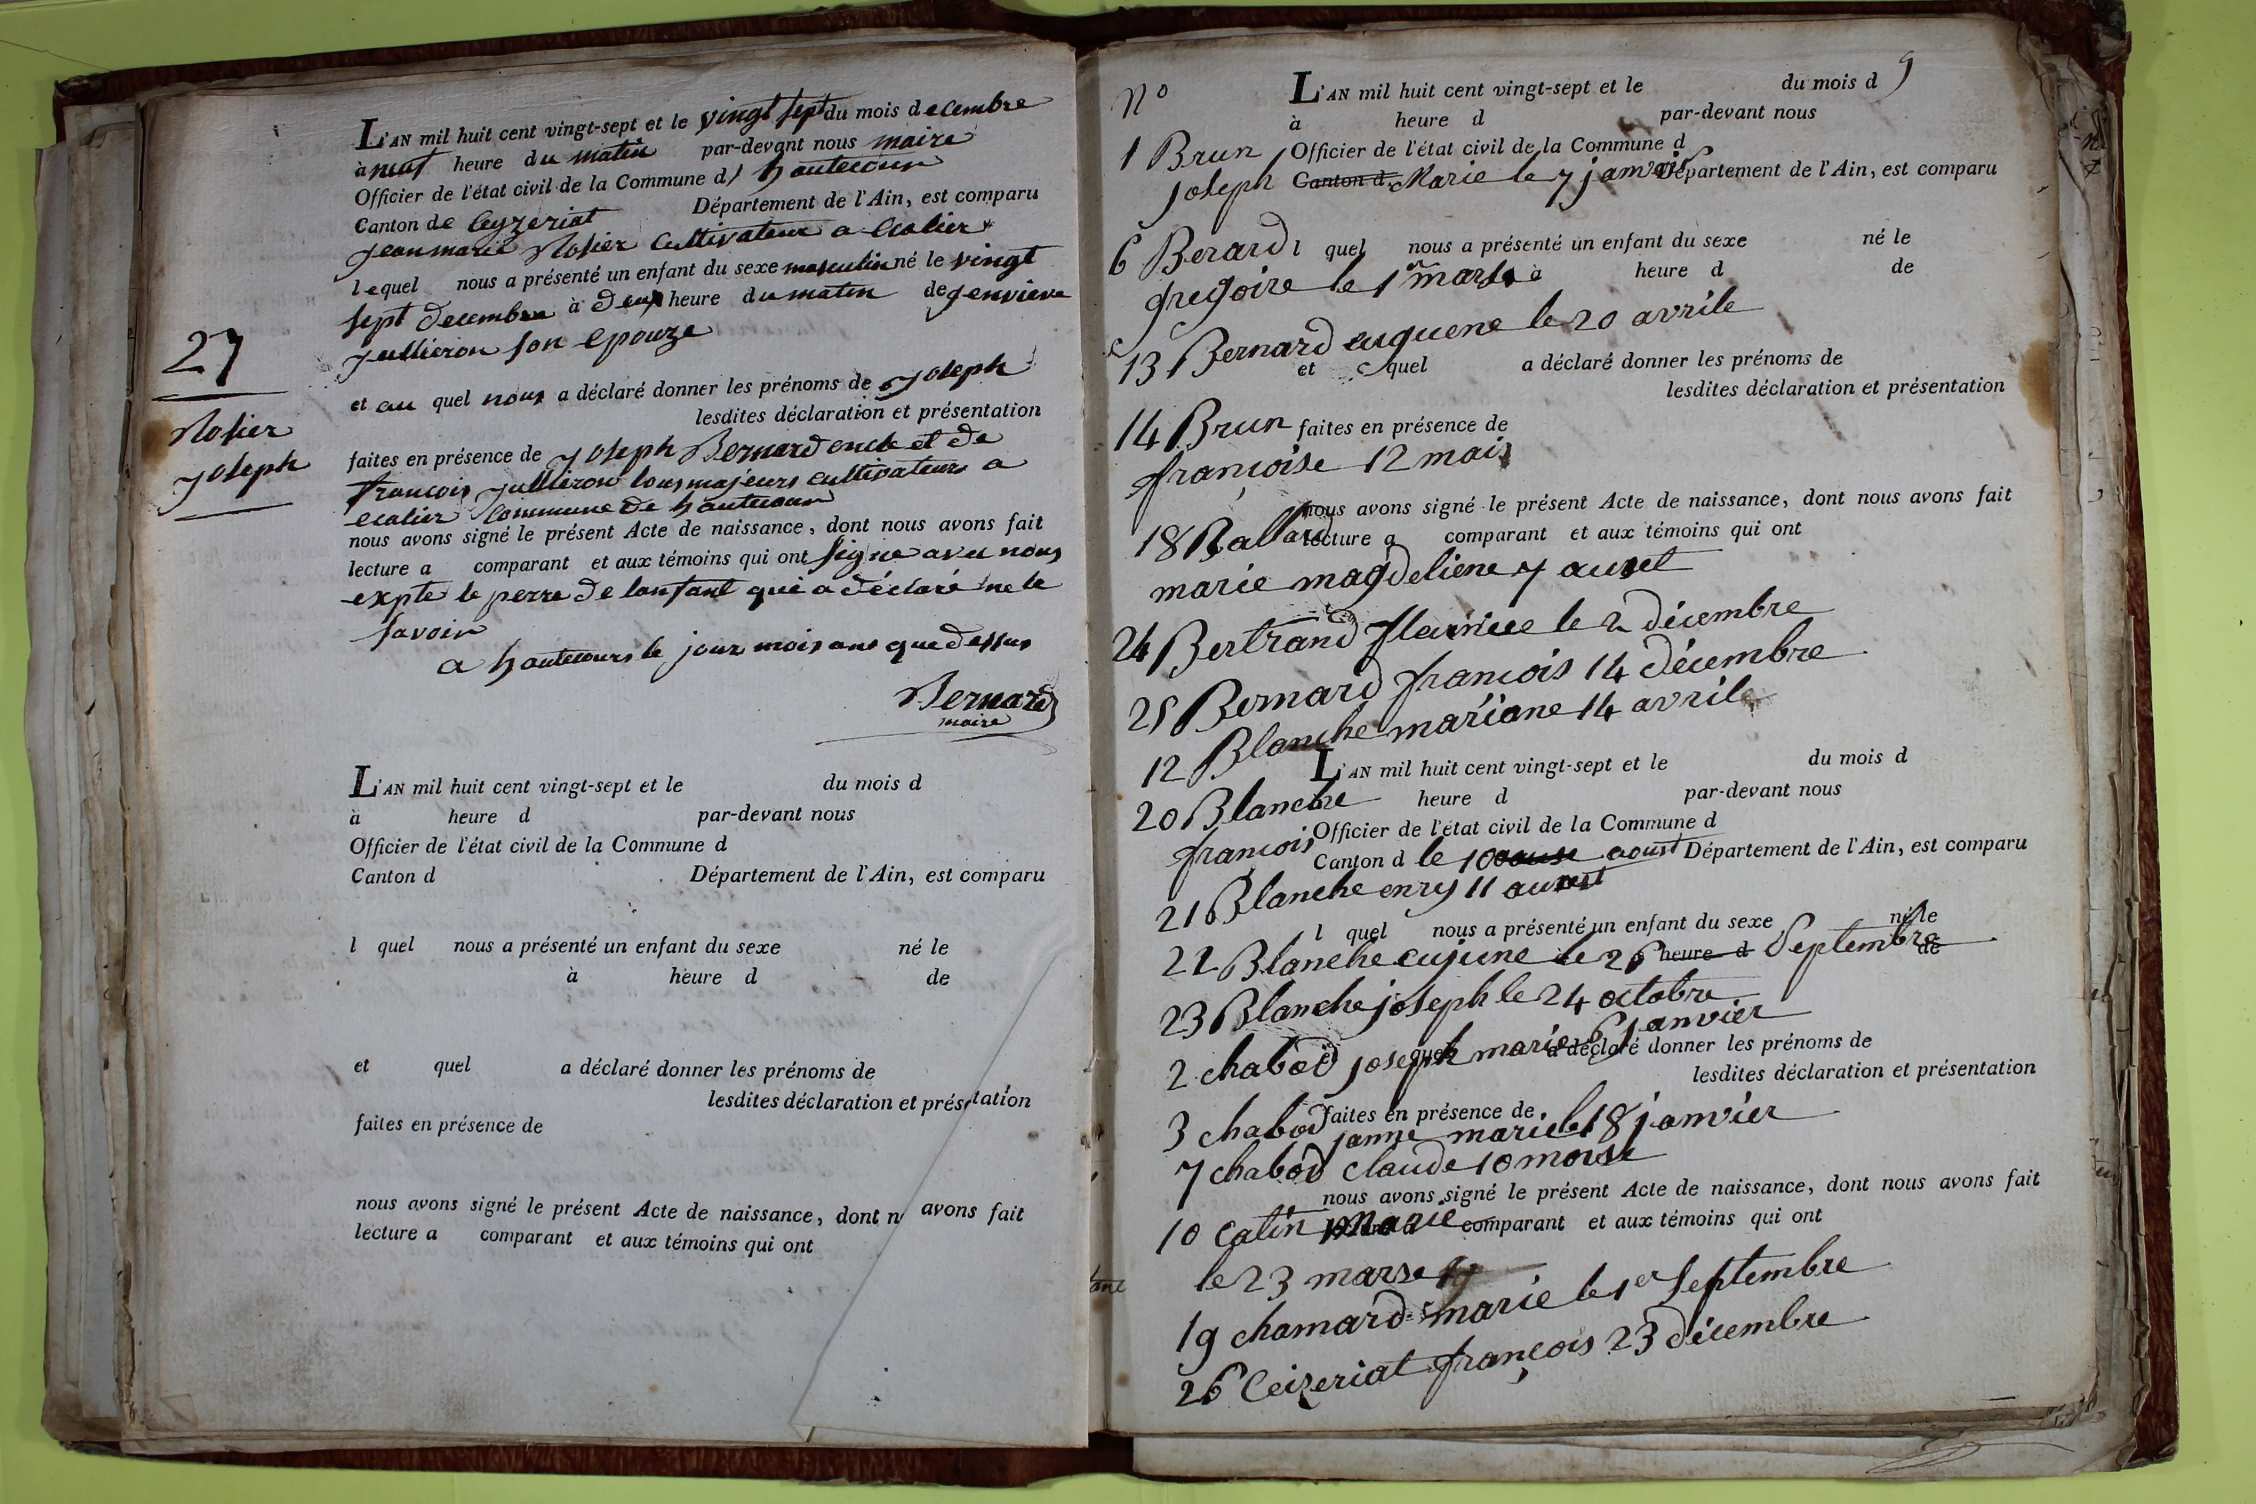 L'AN mil huit cent vingt-sept et le vingt sept du mois decembre
à neuf heure du matin par-devant nous maire
Officier de l'état civil de la Commune d hautecour
Canton de Ceyzeriat Département de l'Ain, est comparu
jean marie Rosier Cultivateur a Ecolier
lequel nous a présenté un enfant du sexe masculin né le vingt
sept decembre à deux heure du matin de genvieve
jullieron son epouze
27
et au quel nous a déclaré donner les prénoms de joseph
lesdites déclaration et présentation
Rosier
joseph
faites en présence de joseph Bernard oncle et de
francois jullieron tous majeurs cultivateurs a
ecolier Commune de hautecour
nous avons signé le présent Acte de naissance, dont nous avons fait
lecture a comparant et aux témoins qui ont signe avec nous
expte le perre de lanfant qui a déclaré ne le
savoir
a hautecours le jour mois ans que dessus
Bernard
maire
L'AN mil huit cent vingt-sept et le du mois d
à heure d par-devant nous
Officier de l'état civil de la Commune d
Canton d Département de l'Ain, est comparu
l quel nous a présenté un enfant du sexe né le
à heure d de
et quel a déclaré donner les prénoms de
lesdites déclaration et présentation
faites en présence de
nous avons signé le présent Acte de naissance, dont n avons fait
lecture a comparant et aux témoins qui ont
No L'AN mil huit cent vingt-sept et le du mois d 9
à heure d par-devant nous
1 Brun Officier de l'état civil de la Commune d
joseph Canton d Marie le 7 janvier Département de l'Ain, est comparu
6 Berard l quel nous a présenté un enfant du sexe né le
gregoire le 1er mars à heure d de
13 Bernard euguene le 20 avrile
et quel a déclaré donner les prénoms de
lesdites déclaration et présentation
14 Brun faites en présence de
françoise 12 mais
nous avons signé le présent Acte de naissance, dont nous avons fait
18 Ballard lecture a comparant et aux témoins qui ont
marie magdeliene 7
24 Bertrand le 2 décembre
25 Bernard francois 14 décembre
12 Blanche mariane 14 avrile
L'AN mil huit cent vingt-sept et le du mois d
20 Blanche heure d par-devant nous
Officier de l'état civil de la Commune d
francois Canton d le 10 aoust Département de l'Ain, est comparu
21 Blanche enry 11
l quel nous a présenté un enfant du sexe né le
22 Blanche eujene le 26 heure d Septembre de
23 Blanche joseph le 24 octobre
2 chabod joseph quel marie 6 janvier
a déclaré donner les prénoms de
lesdites déclaration et présentation
3 chabod faites en présence de
janne marie le 18 janvier
7 chabod claude 10
nous avons signé le présent Acte de naissance, dont nous avons fait
10 Catin Marie comparant et aux témoins qui ont
le 23 marse
19 chamard marie le 1er Septembre
26 Ceizeriat françois 23 décembre